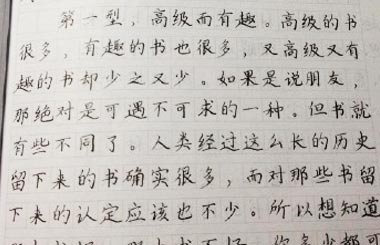 第一型，高级而有趣。高级的书
很多，有趣的书也很多，又高级又有
趣的书却少之又少。如果是说朋友，
那绝对是可遇不可求的一种。但书就
有些不同了。人类经过这么长的历史
留下来的书确实很多，而对那些书留
下来的认定应该也不少。所以想知道